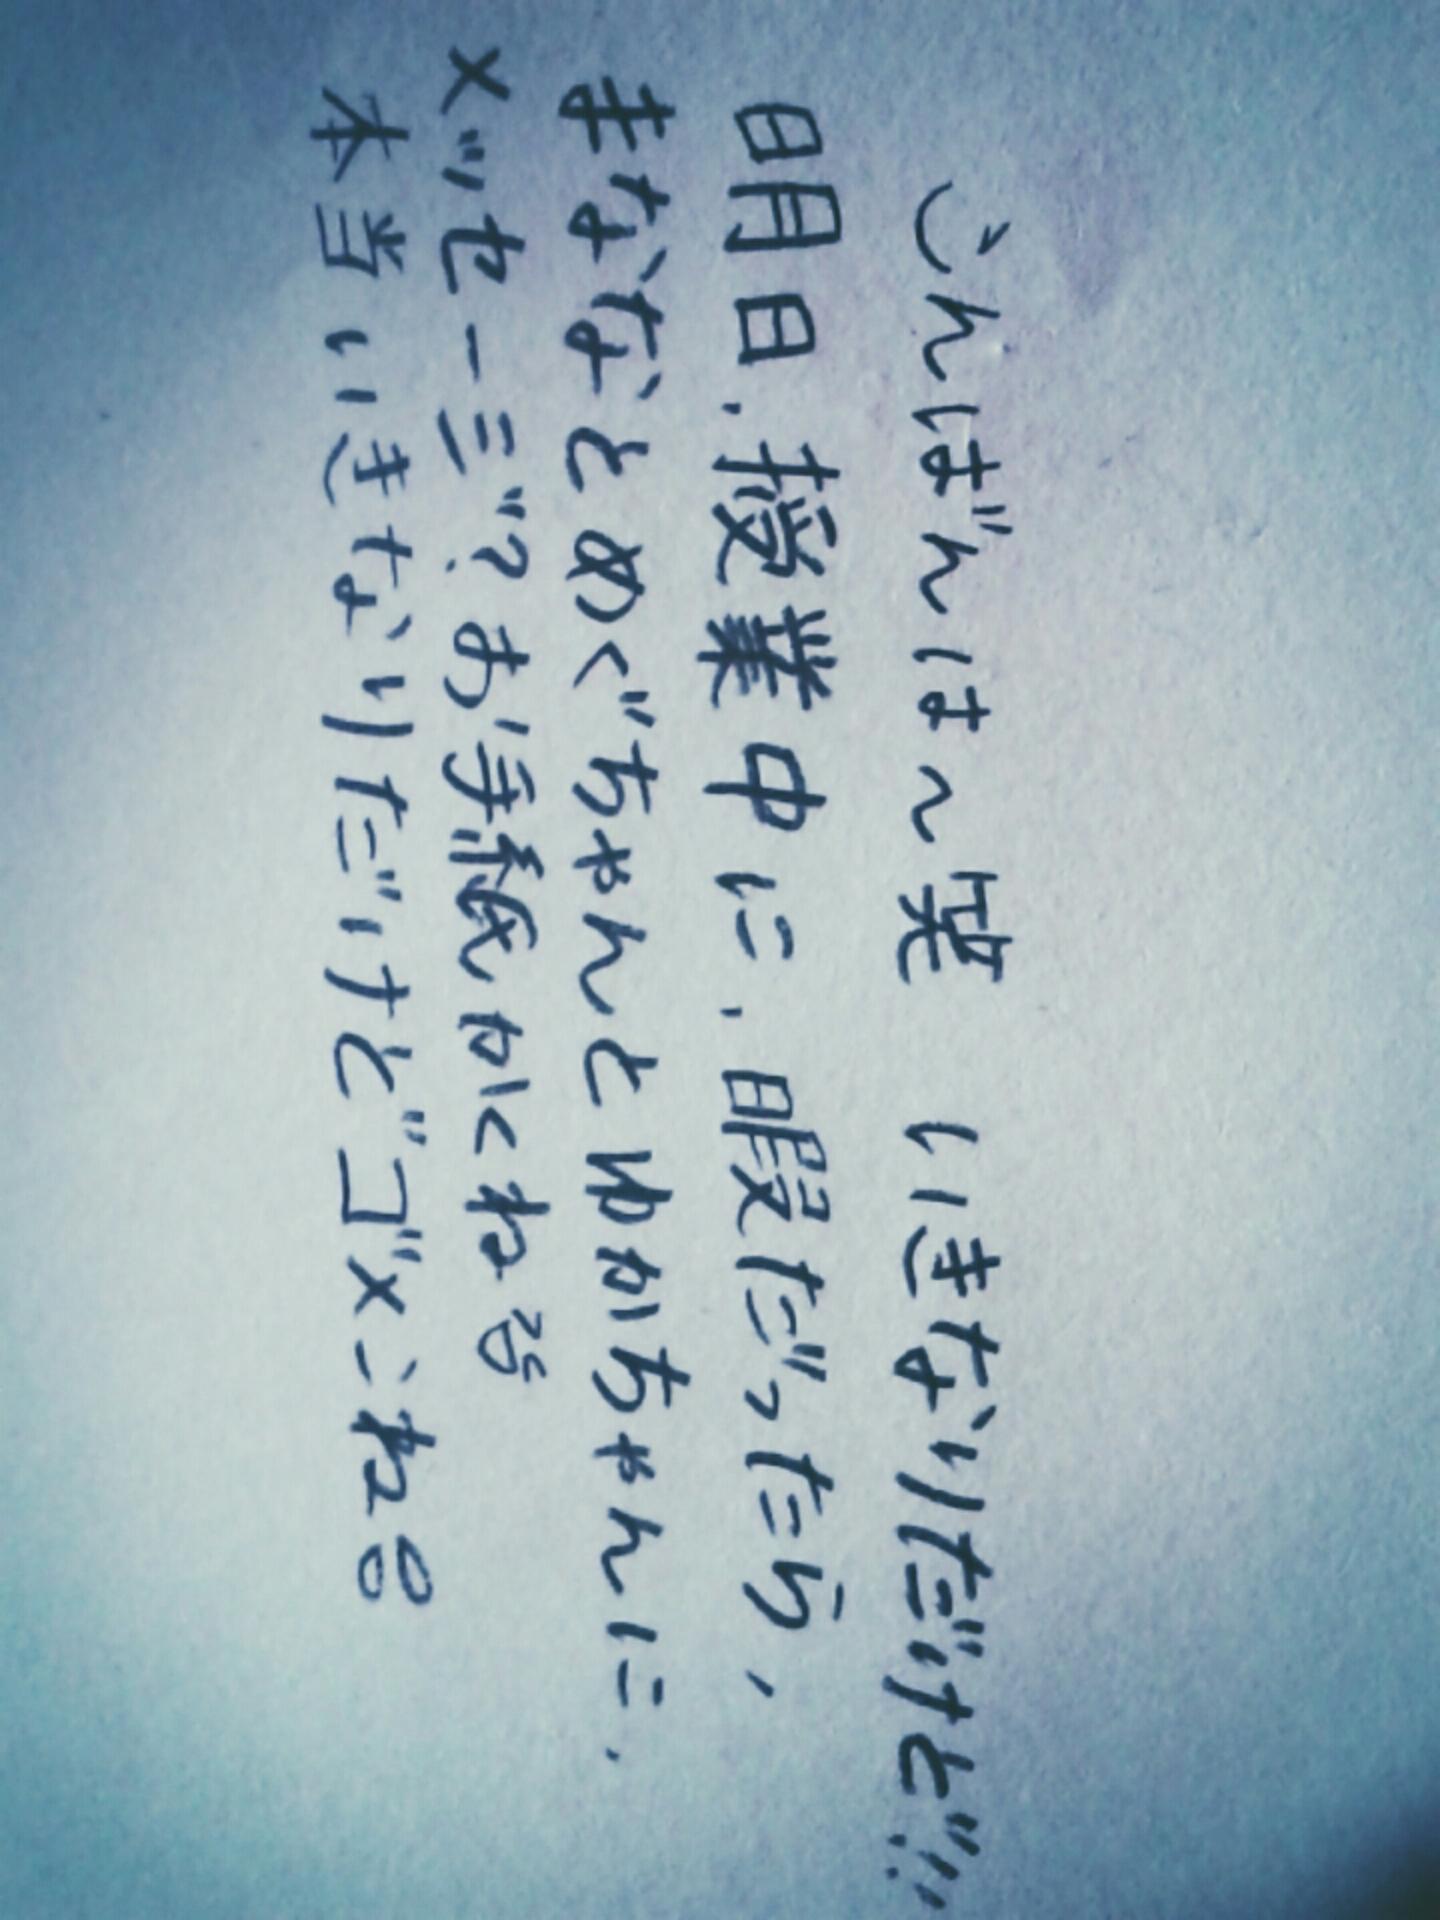 こんばんは~ いきなりだけど!!
明日、授業中に、暇だったら、
まななとめぐちゃんとゆかちゃんに、
メッセージ?お手紙かくね
本当いきなりだけどゴメンね。。